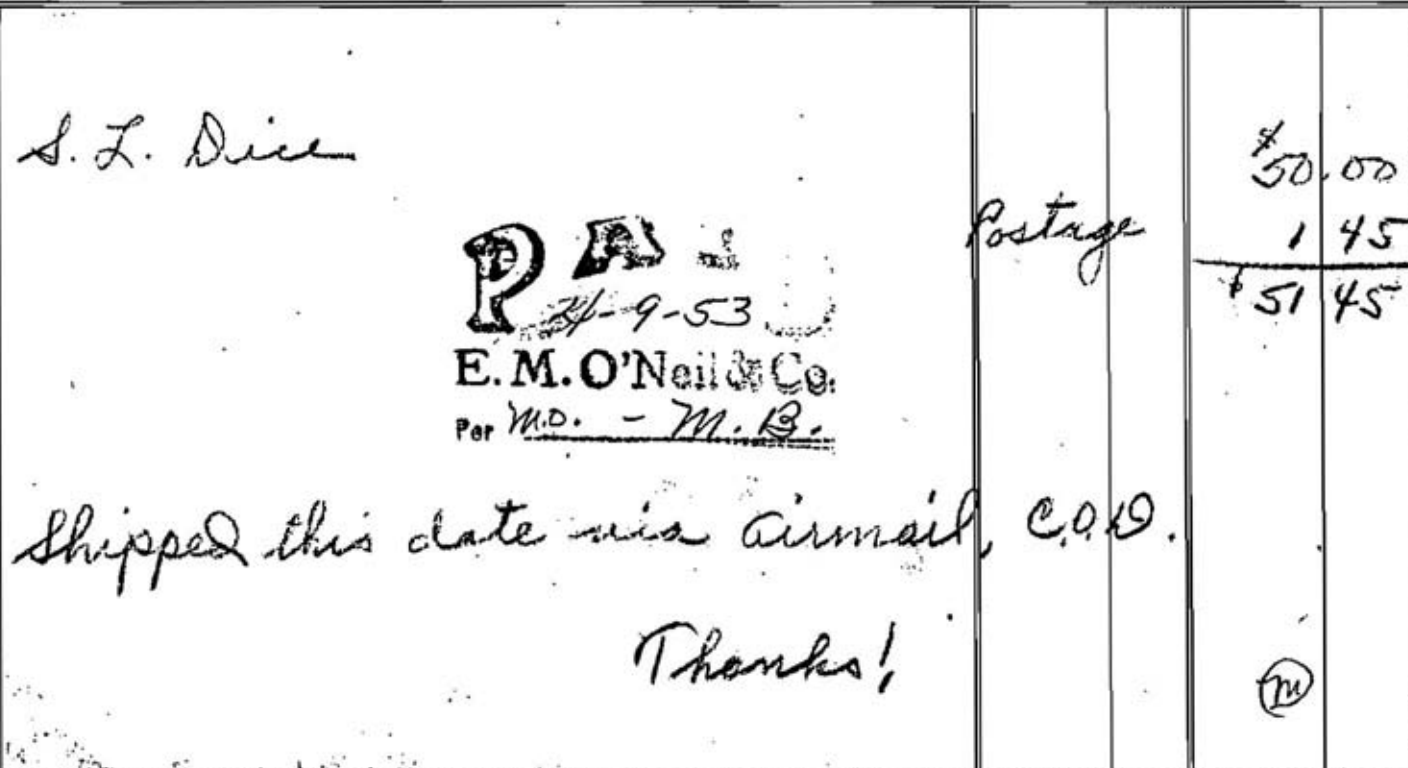 S. L. Dice
$50.00
Postage 1 45
$51 45
PAID
4-9-53
E. M. O'Neil & Co.
Per M.O. - M. B.
Shipped this date via airmail, C.O.D.
Thanks!
m